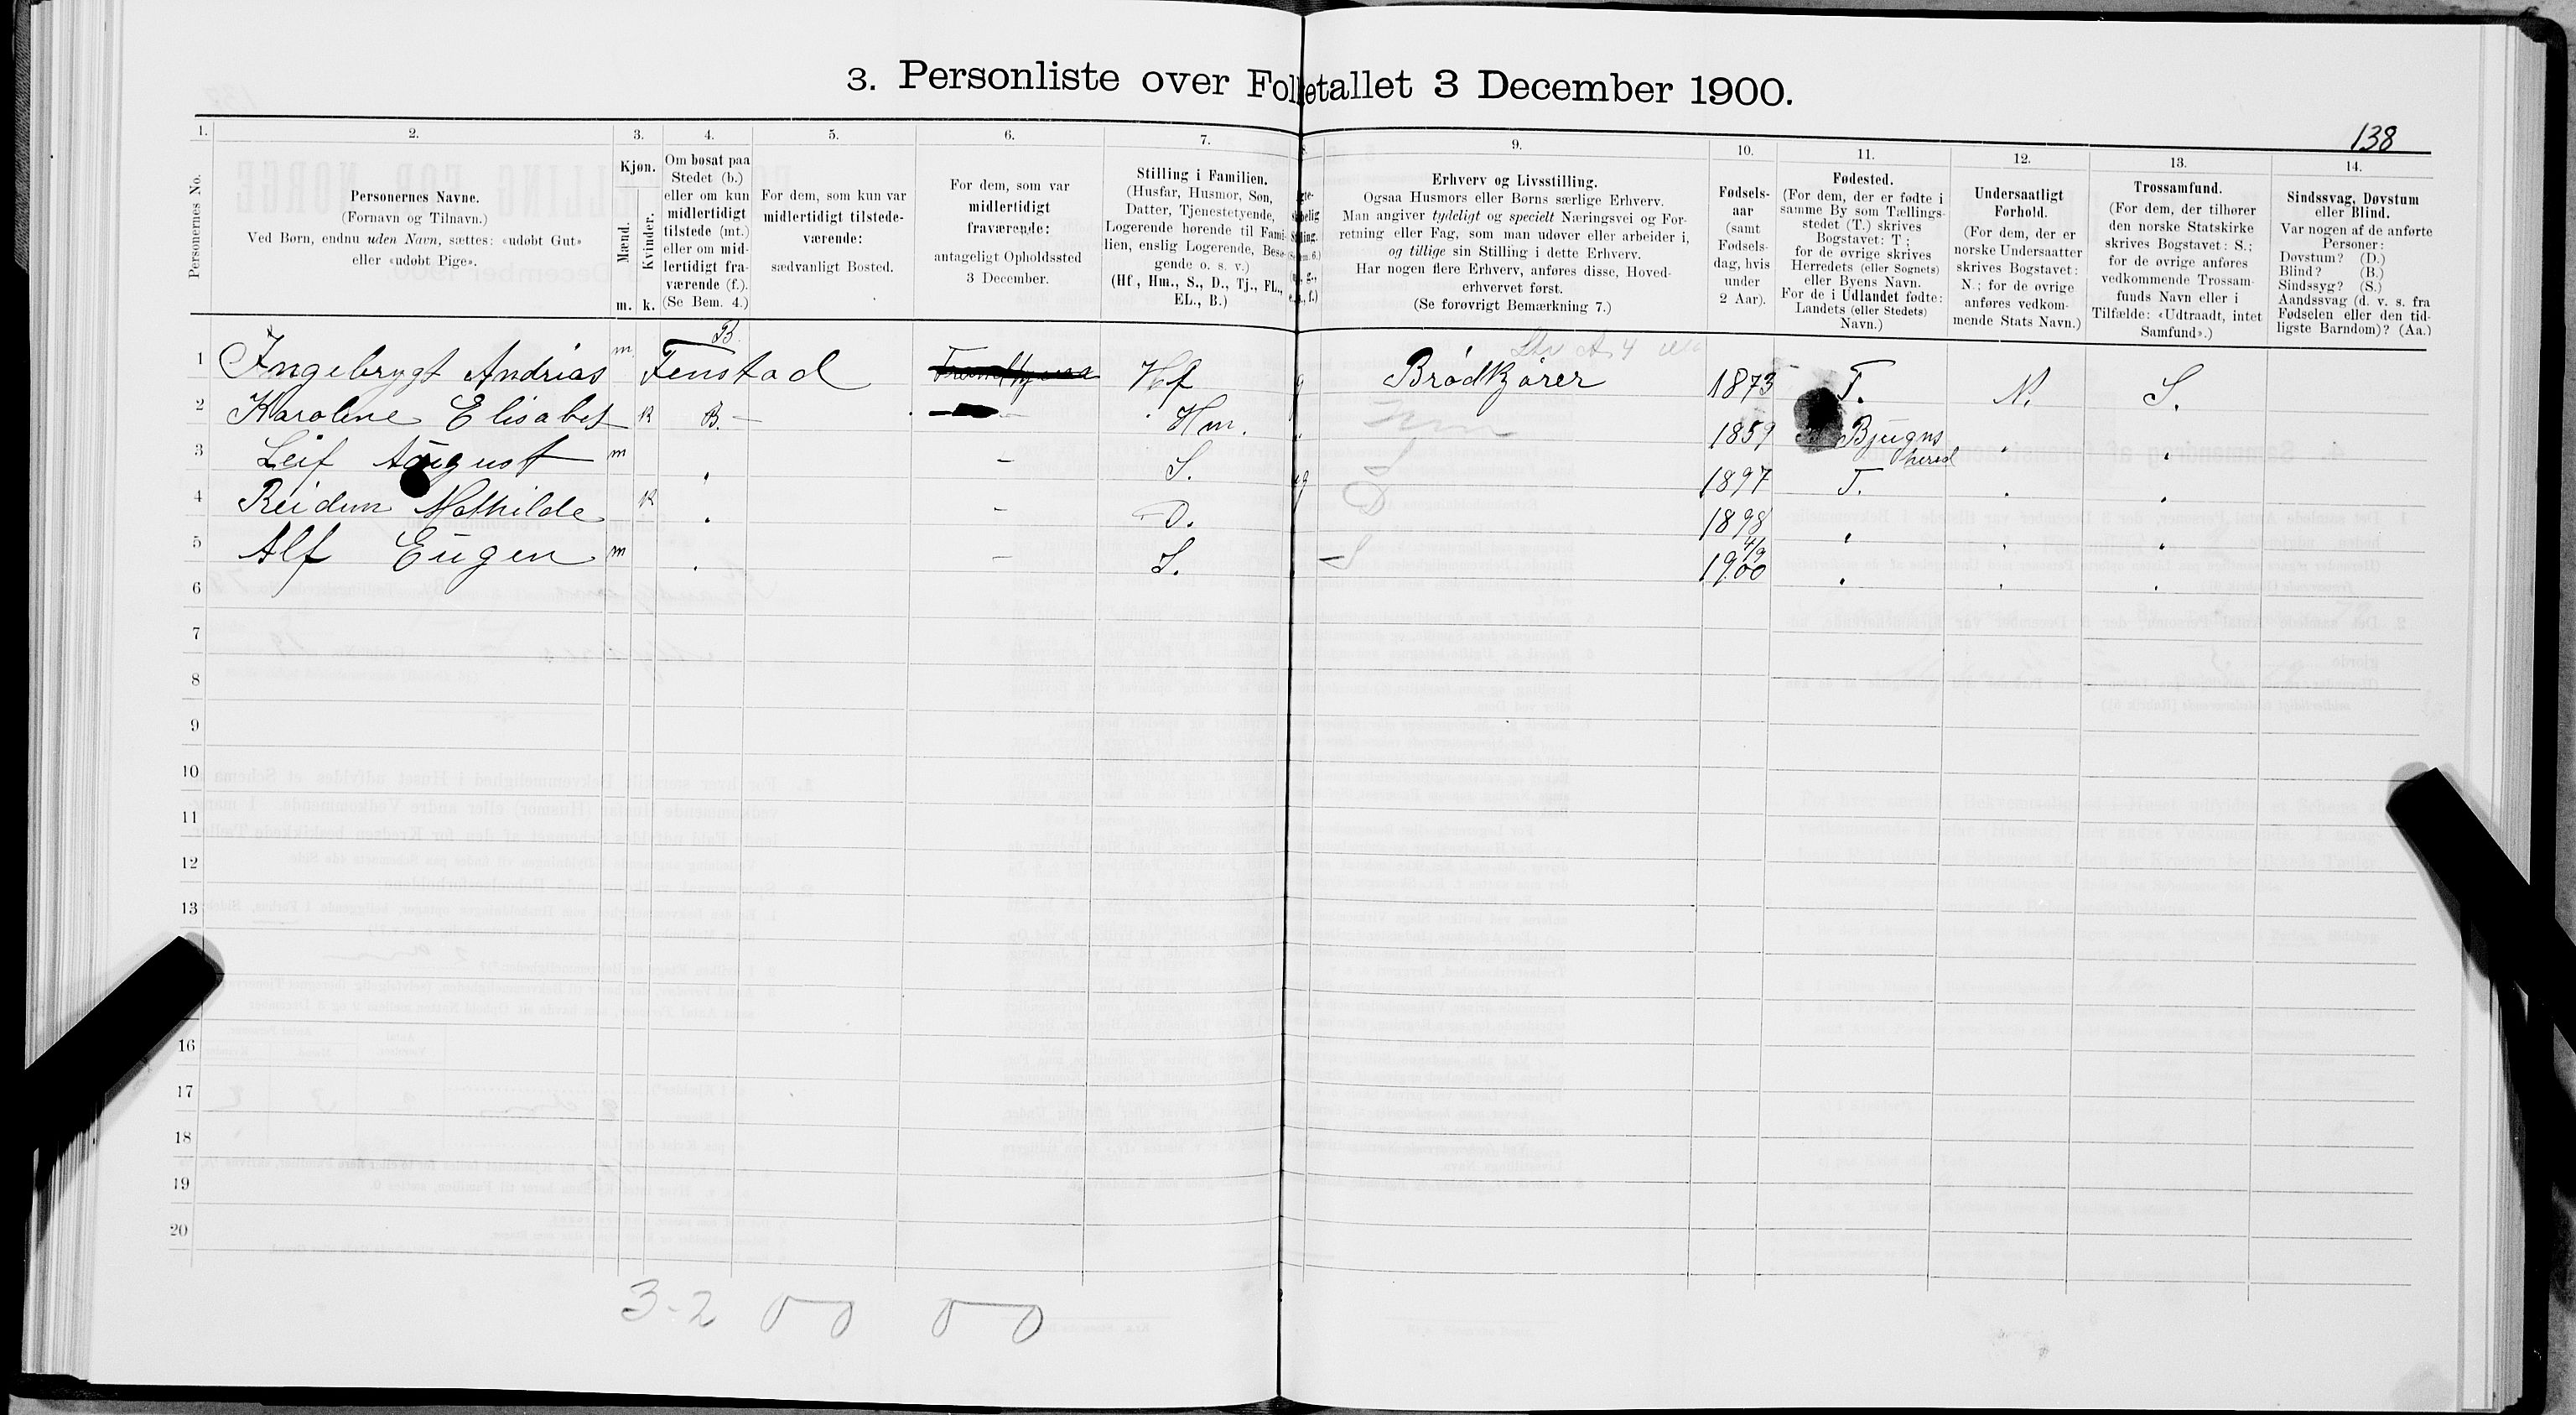 3. Personliste over Folketallet 3 December 1900.
138
1. 2. 3. 4. 5. 6. 7. 8. 9. 10. 11. 12. 13. 14.
Personernes No.
Personernes Navne.
(Fornavn og Tilnavn.)
Ved Børn, endnu uden Navn, sættes: «udøbt Gut»
eller «udøbt Pige».
Kjøn.
Mænd.
Kvinder.
m. k.
Om bosat paa
Stedet (b.)
eller om kun
midlertidigt
tilstede (mt.)
eller om mid-
lertidigt fra-
værende (f.).
(Se Bem. 4.)
For dem, som kun var
midlertidigt tilstede-
værende:
sædvanligt Bosted.
For dem, som var
midlertidigt
fraværende:
antageligt Opholdssted
3 December.
Stilling i Familien.
(Husfar, Husmor, Søn,
Datter, Tjenestetyende,
Logerende hørende til Fami-
lien, enslig Logerende, Besø-
gende o. s. v.)
(Hf., Hm., S., D., Tj., FL.,
EL., B.)
Erhverv og Livsstilling.
Ogsaa Husmors eller Børns særlige Erhverv.
Man angiver tydeligt og specielt Næringsvei og For-
retning eller Fag, som man udøver eller arbeider i,
og tillige sin Stilling i dette Erhverv.
Har nogen flere Erhverv, anføres disse, Hoved-
erhvervet først.
(Se forøvrigt Bemærkning 7.)
Fødsels-
aar
(samt
Fødsels-
dag, hvis
under
2 Aar).
Fødested.
(For dem, der er fødte i
samme By som Tællings-
stedet (T.) skrives
Bogstavet: T;
for de øvrige skrives
Herredets (eller Sognets)
eller Byens Navn.
For de i Udlandet fødte:
Landets (eller Stedets)
Navn.)
Undersaatligt
Forhold.
(For dem, der er
norske Undersaatter
skrives Bogstavet:
N.; for de øvrige
anføres vedkom-
mende Stats Navn.)
Trossamfund.
(For dem, der tilhører
den norske Statskirke
skrives Bogstavet: S.;
for de øvrige anføres
vedkommende Trossam-
funds Navn eller i
Tilfælde: «Udtraadt, intet
Samfund».)
Sindssvag, Døvstum
eller Blind.
Var nogen af de anførte
Personer:
Døvstum? (D.)
Blind? (B.)
Sindssyg? (S.)
Aandssvag (d. v. s. fra
Fødselen eller den tid-
ligste Barndom)? (Aa.)
1 Ingebrygt Andrias Fenstad m B. Hf g Brødkjører 1873 T. N. S.
2 Karoline Elisabet k B. – Hm. 1859 Bjugns herred
3 Leif August m – S. S 1897 T.
4 Reidun Mathilde k – D. D 1898
5 Alf Eugen m – S. S 4/9 1900
6
7
8
9
10
11
12
13
16
17
18
19
20
3-2 0–0 0–0